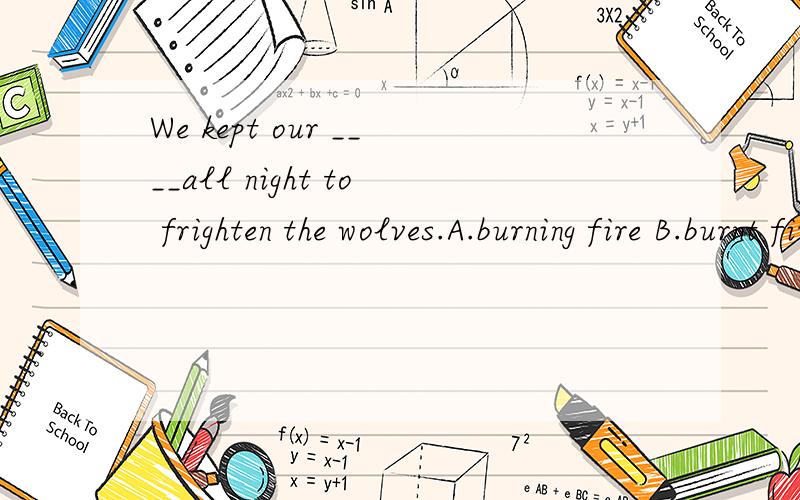 sin A
3X2
Back To
School
C
ax2 + bx +c = 0
x
α
f(x) = x-1
y = x-1
x = y+1
We kept our __
__all night to
frighten the wolves.A.burning fire B.burnt fi
Back To
School
f(x) = x-1
y = x-1
x = y+1
7²
e AB + e BC =